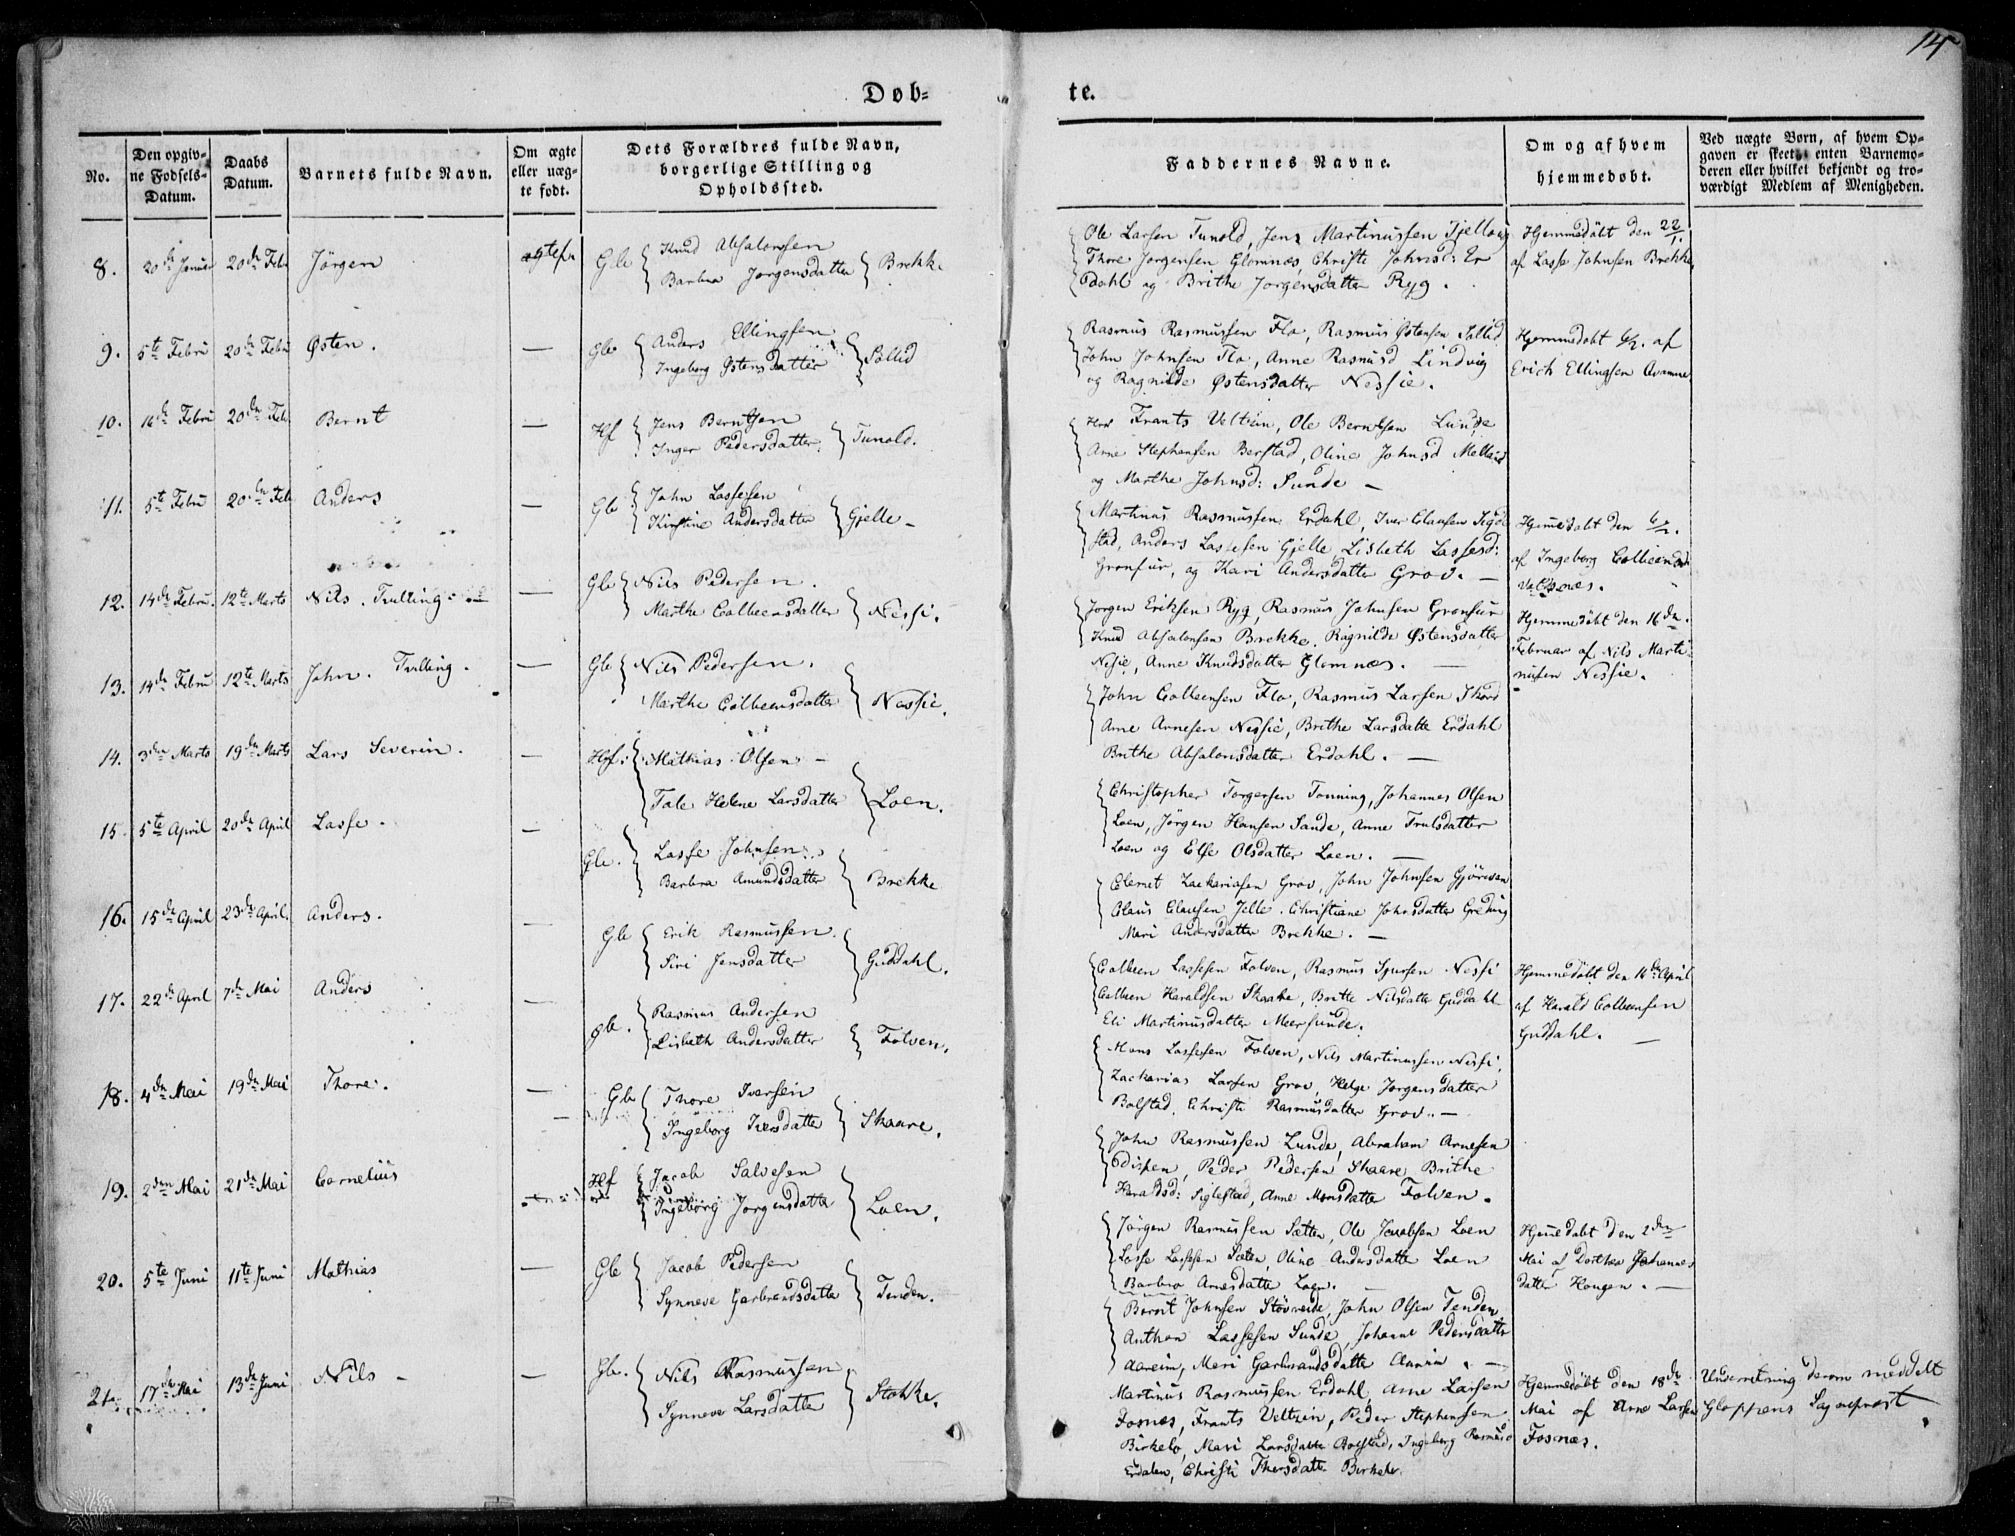 14
Døb=
te.
No.
Den opgiv-
ne Fødsels-
Datum.
Daabs
Datum.
Barnets fulde Navn.
Om ægte
eller uæg-
te født.
Dets Forældres fulde Navn,
borgerlige Stilling og
Opholdssted.
Faddernes Navne.
Om og af hvem
hjemmedøbt.
Ved uægte Børn, af hvem Op-
gaven er skeet enten Barnemo-
deren eller hvilket bekjendt og tro-
værdigt Medlem af Menigheden.
8. 20de Januar 20de Febr Jörgen Gbr Knud Absalonsen
Barbra Jorgensdatter Brekke
Ole Larsen Tunold, Jens Martinussen Tjello og
Thore Jorgensen Glomnæs, Christi Johnsd: Er
dahl og Brithe Jorgensdatter Ryg.
Hjemmedöbt den 22/1.
af Lasse Johnsen Brekke
9. 5te Febru 20de Febru Østen. — Gbr Anders Ellingsen
Ingeborg Østensdatter Sollid
Rasmus Rasmussen Flo, Rasmus Østensen Sollid
John Johnsen Flo, Anne Rasmusd Lindvig
og Ragnilde Østensdatter Nessie.
Hjemmedobt 6/2. af
Erich Ellingsen
10. 16de Febru 20de Feb Bernt — Hf Jens Berntsen
Inger Pedersdatter Tunold.
Herr Frants Veltzin, Ole Berntsen Lunde
Arne Stephansen Berstad, Oline Johnsd Melland
og Marthe Johnsd: Sunde —
11. 5te Febru 20de Feb Anders — Gbr John Lassesen
Kirstine Andersdatter Gjelle —
Martinus Rasmussen Erdahl, Iver Clausen
stad, Anders Lassesen Gjelle, Lisbeth Lassesd:
Gronfur, og Kari Andersdatter Grov. —
Hjemmedobt den 6/2.
af Ingeborg Colbeensd
12. 14de Febru. 12te Marts Nils. Tvilling — Gbr Nils Pedersen.
Marthe Colbeensdatter Nessi.
Jorgen Eriksen Ryg, Rasmus Johnsen Gronfur
Knud Absalonsen Brekke, Ragnilde Østensdatter
Nesje, Anne Knudsdatter Glomnæs. —
Hjemmedöbt den 16de
Februar af Nils Marti-
nusen Nessie.
13. 14de Febru 12te Marts John. Tvilling. — Gbr Nils Pedersen.
Marthe Colbeensdatter Nessie.
John Colbeensen Flo, Rasmus Larsen
Arne Arnesen Nessie, Brithe Larsdatte Erdahl
Brithe Absalonsdatter Erdahl. —
14. 3die Marts 19de Marts Lars Severin. — Hf: Mathias Olsen —
Tale Helene Larsdatter Loen.
Christopher Torgersen Tonning, Johannes Olsen
Loen, Jörgen Hansen Sande, Anne Trulsdatter
Loen og Else Olsdatter Loen. —
15. 5te April 20de April Lasse. — Gbr. Lasse Johnsen
Barbra Amundsdatter Brekke
Clemet Zackariasen Grov, John Johnsen Gjörven
Claus Clausen Jelle. Christiane Johnsdatter Greding
Mari Andersdatter Brekke. —
16. 15de April 23de April. Anders. — Gbr Erik Rasmussen.
Siri Jensdatter Guddahl.
Colbeen Lassesen Folven, Rasmus Nessi
Colbeen Haraldsen Skaare, Britte Nilsdatter Guddahl
Eli Martinusdatter Meersunde.
Hjemmedöbt den 16de April
af Harald Colbeensen
Guddahl. —
17. 22de April 7de Mai Anders — gbr. Rasmus Andersen
Lisbeth Andersdatter Folven.
Mons Lassesen Folven, Nils Martinussen Nessi,
Zackarias Larsen Grov, Helge Jorgensdatter
Bolstad, Christi Rasmusdatter Grov. —
18. 4de Mai 19de Mai Thore. — Gbr Thore Iversen
Ingeborg Iversdatter Skaare.
John Rasmussen Lunde, Abraham Arnesen
Peder Pedersen Skaare, Brithe
Haraldsd: Siglestad, Anne Monsdatter Folven.
19. 2den Mai 21de Mai Cornelius Hf Jacob Salvesen
Ingeborg Jorgensdatter Loen.
Jörgen Rasmussen Sætten, Ole Jacobsen Loen
Lasse Lassesen Sæten, Oline Andersdatter Loen
Barbro Arnesdatter Loen.
Hjemmedobt den 2den
Mai af Dorthea Johannes
datter Haugen. —
20. 5te Juni 11te Juni Mathias — Gbr Jacob Pedersen
Synneve Garbrandsdatter Tenden.
Bernt Johnsen Stövreide, John Olsen Tenden
Anthon Lassesen Sunde, Johanne Pedersdatter
Aareim, Mari Garbrandsdatter Aareim. —
21. 17de Mai 13de Juni Nils — — Gbr. Nils Rasmussen
Synneve Larsdatter Stokke.
Martinus Rasmussen Erdahl, Arne Larsen
Fosnæs, Frants Veltzin, Peder Stephensen
Birkelo, Mari Larsdatte Bolstad, Ingeborg Rasmusd
Erdalen, Christi Thersdatter Birkelo.
Hjemmedöbt den 18de
Mai af Arne Larsen
Fosnæs.
Underretning derom meddelt
Gloppens Sogneprest